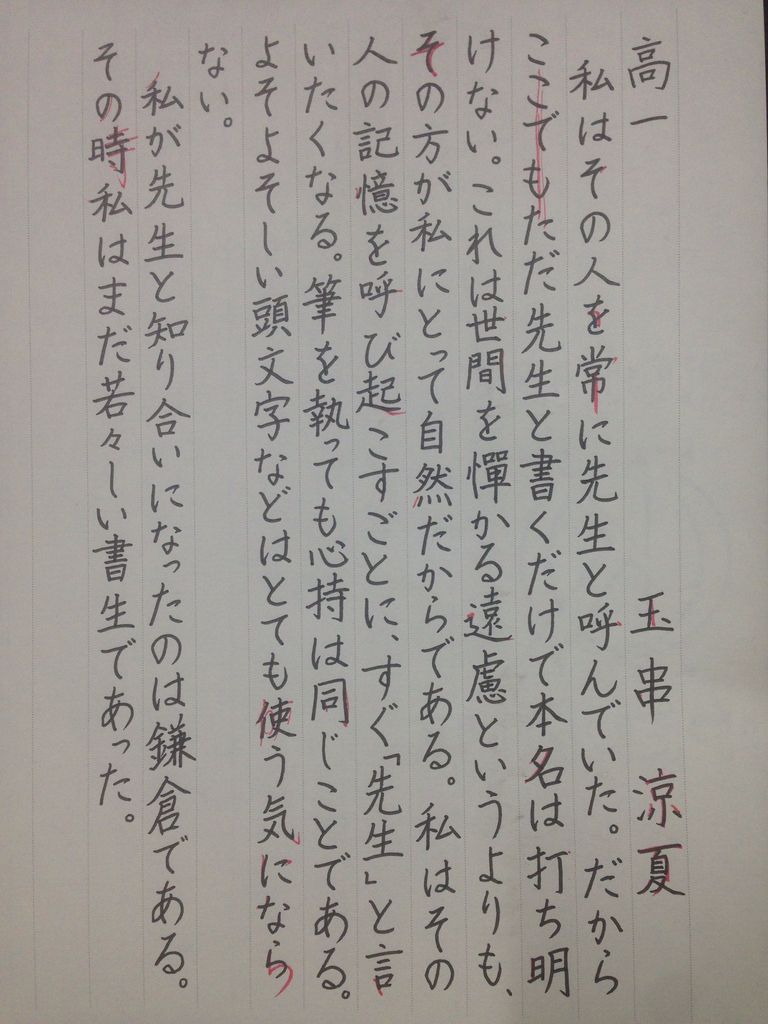 高一 玉串 涼夏
私はその人を常に先生と呼んでいた。だから
ここでもただ先生と書くだけで本名は打ち明
けない。これは世間を憚かる遠慮というよりも、
その方が私にとって自然だからである。私はその
人の記憶を呼び起こすごとに、すぐ「先生」と言
いたくなる。筆を執っても心持は同じことである。
よそよそしい頭文字などはとても使う気になら
ない。
私が先生と知り合いになったのは鎌倉である。
その時私はまだ若々しい書生であった。